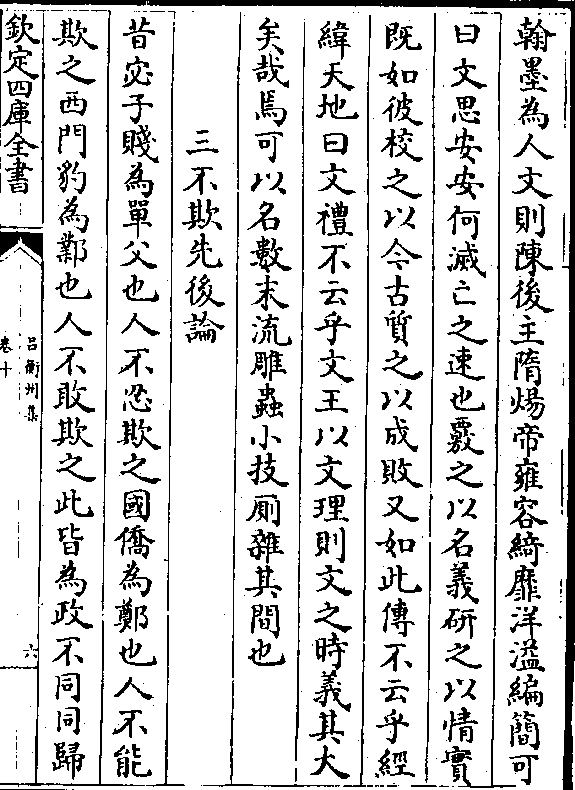 翰墨為人文則陳後主隋煬帝雍容綺靡洋溢編簡可
曰文思安安何滅亡之速也覈之以名義研之以情實
既如彼校之以今古質之以成敗又如此傳不云乎經
緯天地曰文禮不云乎文王以文理則文之時義其大
矣哉焉可以名數末流雕蟲小技厠雜其間也
三不欺先後論
昔宓子賤為單父也人不忍欺之國僑為鄭也人不能
欺之西門豹為鄴也人不敢欺之此皆為政不同同歸
欽定四庫全書
呂衡州集
卷十
六